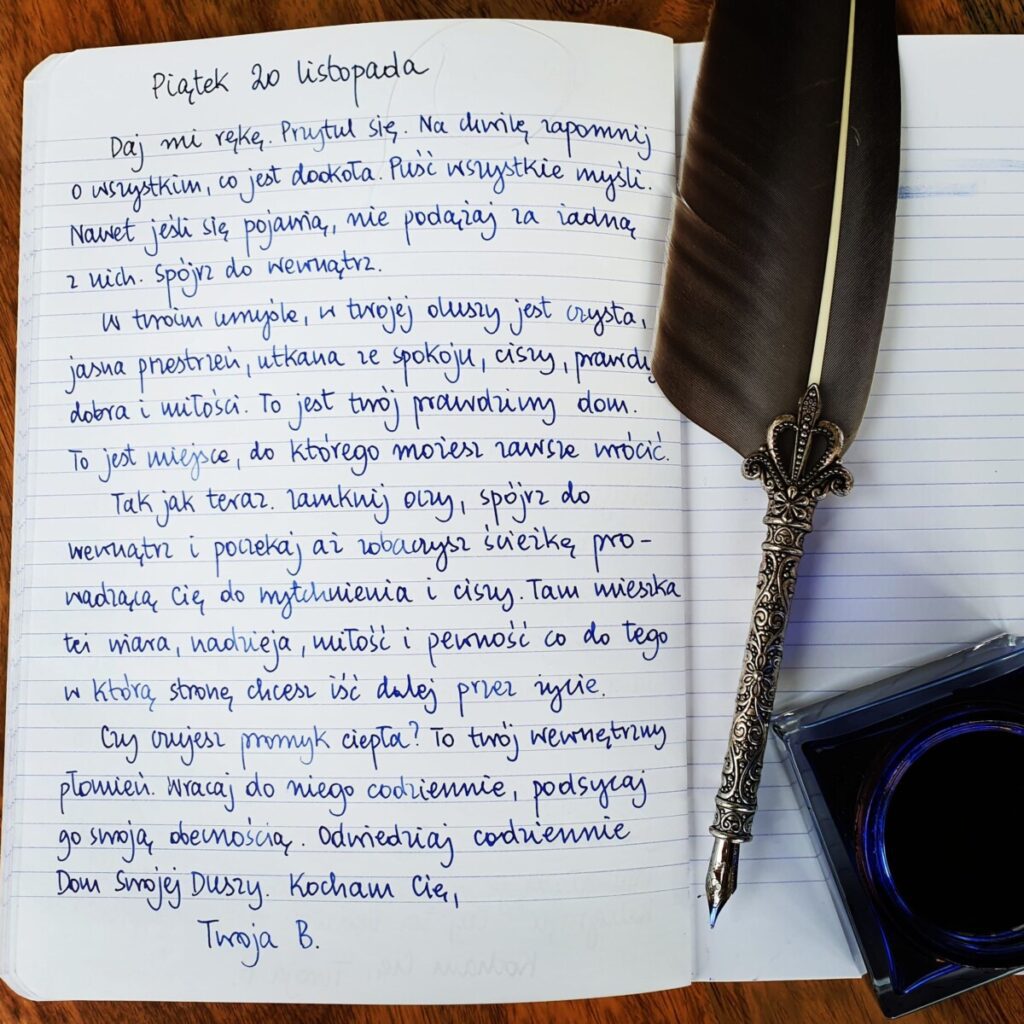 Piątek 20 listopada
Daj mi rękę. Przytul się. Na chwilę zapomnij
o wszystkim, co jest dookoła. Puść wszystkie myśli.
Nawet jeśli się pojawią, nie podążaj za żadną
z nich. Spójrz do wewnątrz.
W twoim umyśle, w twojej duszy jest czysta,
jasna przestrzeń, utkana ze spokoju, ciszy, prawdy
dobra i miłości. To jest twój prawdziwy dom.
To jest miejsce, do którego możesz zawsze wrócić.
Tak jak teraz. Zamknij oczy, spójrz do
wewnątrz i poczekaj aż zobaczysz ścieżkę pro-
wadzącą Cię do wytchnienia i ciszy. Tam mieszka
też wiara, nadzieja, miłość i pewność co do tego
w którą stronę chcesz iść dalej przez życie.
Czy czujesz promyk ciepła? To twój wewnętrzny
płomień. Wracaj do niego codziennie, podsycaj
go swoją obecnością. Odwiedzaj codziennie
Dom Swojej Duszy. Kocham Cię,
Twoja B.